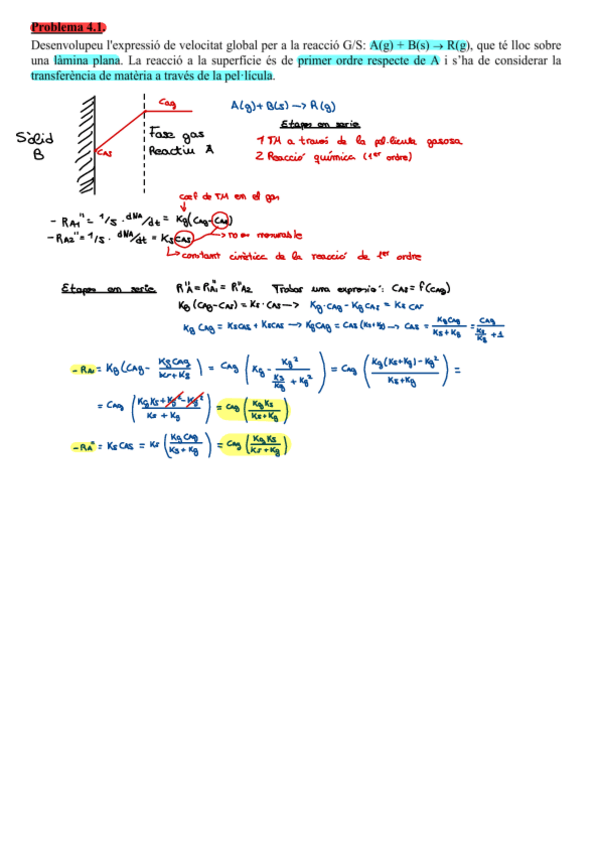 Problema 4.1.
Desenvolupeu l'expressió de velocitat global per a la reacció G/S: A(g) + B(s) → R(g), que té lloc sobre
una làmina plana. La reacció a la superfície és de primer ordre respecte de A i s'ha de considerar la
transferència de matèria a través de la pel·lícula.
CAg
A(g)+B(s) → R(g)
Etapes en serie
Sòlid
B
CAS
Fase gas
Reactiu A
1 TM a través de la pel·lícula gasosa
2 Reacció química (1er ordre)
coef de TM en el gas
-RA1" = 1/S · dNA/dt = Kg(CAg-CAS)
-RA2" = 1/S · dNA/dt = KSCAS → no es mesurable
→ constant cinètica de la reacció de 1er ordre
Etapes en serie R"A = R"A1 = R"A2 Trobar una expresió: CAS = f(CAg)
Kg(CAg-CAS) = KS·CAS → Kg·CAg - KgCAS = KS CAS
Kg CAg = KSCAS + KgCAS → KgCAg = CAS(KS+Kg) → CAS = KgCAg/(KS+Kg) = CAg/(KS/Kg + 1)
-RA" = Kg(CAg - KgCAg/(KS+Kg)) = CAg(Kg - Kg²/(KS+Kg)) = CAg((Kg(KS+Kg)-Kg²)/(KS+Kg)) =
= CAg((KgKS+Kg²-Kg²)/(KS+Kg)) = CAg(KgKS/(KS+Kg))
-RA" = KSCAS = KS(KgCAg/(KS+Kg)) = CAg(KgKS/(KS+Kg))